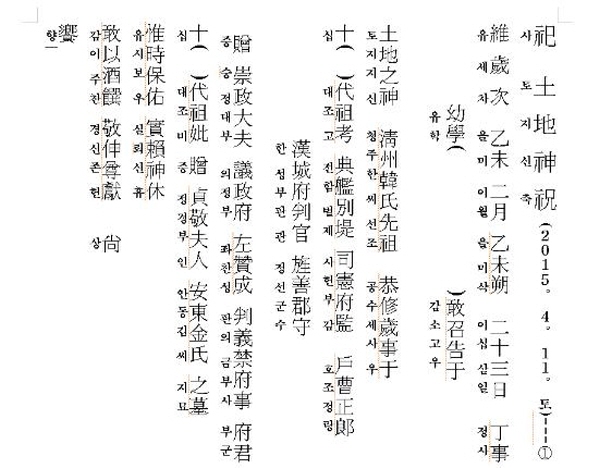 祀 土地神祝 (2015. 4. 11. 토)---①
사 토 지 신 축
維 歲次 乙未 二月 乙未朔 二十三日 丁事
유 세차 을미 이월 을미삭 이십삼일 정사
幼學( )敢召告于
유학 감소고우
土地之神 淸州韓氏先祖 恭修歲事于
토지지신 청주한씨선조 공수세사우
十( )代祖考 典艦別堤 司憲府監 戶曹正郞
십 대조고 전함별제 사헌부감 호조정랑
漢城府判官 旌善郡守
한성부판관 정선군수
贈 崇政大夫 議政府 左贊成 判義禁府事 府君
증 숭정대부 의정부 좌찬성 판의금부사 부군
十( )代祖妣 贈 貞敬夫人 安東金氏 之墓
십 대조비 증 정경부인 안동김씨 지묘
惟時保佑 實賴神休
유시보우 실뢰신휴
敢以酒饌 敬伸尊獻 尙
감이주찬 경신존헌 상
饗
향